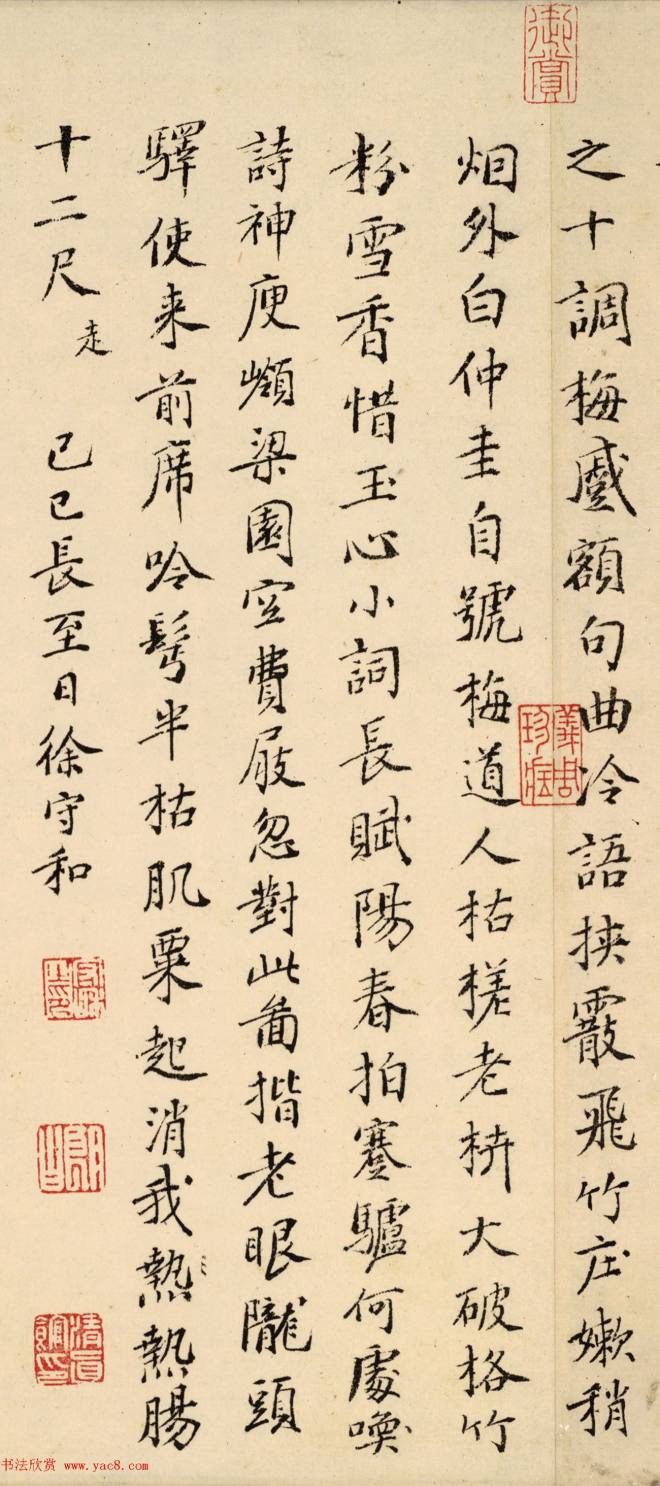 御賞
之十調梅戲額句曲冷語挾霰飛竹庄嫰稍
烟外白仲圭自號梅道人枯槎老枿大破格竹
粉雪香惜玉心小詞長賦陽春拍蹇驢何處喚
詩神庾嶺梁園空費屐忽對此啚揩老眼隴頭
驛使来前席吟髩半枯肌粟起消我熱熱腸
十二尺 走
己巳長至日徐守和
书法欣赏 www.yac8.com